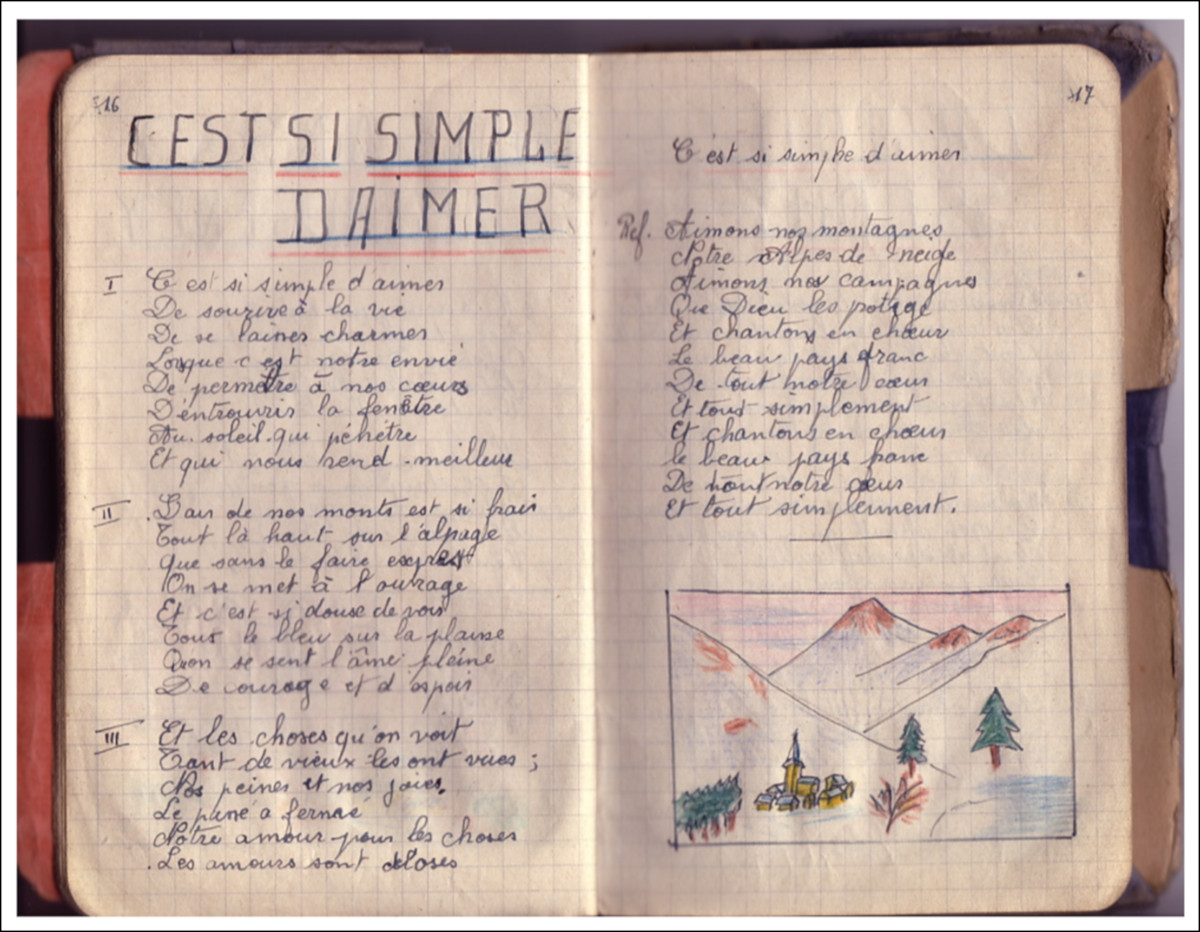 16
C'EST SI SIMPLE
D'AIMER
I C'est si simple d'aimer
De sourire à la vie
De se laines charmer
Losque c'est notre envie
De permètre à nos cœurs
D'entrouvris la fenètre
Au soleil qui pénètre
Et qui nous rend meilleur
II L'air de nos monts est si frais
Tout là haut sur l'alpage
que sans le faire exprest
On se met à l'ouvrage
Et c'est si douse de voir
Tout le bleu sur la plaine
Qu'on se sent l'âme pleine
De courage et d'espoir
III Et les choses qu'on voit
Tant de vieux les ont vues ;
Nos peines et nos joies.
Le à
Notre amour pour les choses
Les amours sont
17
C'est si simple d'aimer
Ref. Aimons nos montagnes
Notre Alpes de neige
Aimons nos campagnes
Que Dieu les potège
Et chantons en chœur
Le beau pays franc
De tout notre cœur
Et tout simplement
Et chantons en chœur
le beau pays
De tout notre cœur
Et tout simplement.